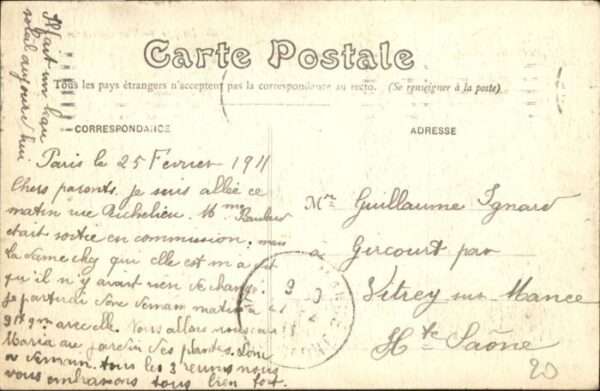 Il fait un beau
soleil aujourd'hui
Carte Postale
Tous les pays étrangers n'acceptent pas la correspondance au recto. (Se renseigner à la poste)
CORRESPONDANCE
ADRESSE
Paris le 25 Fevrier 1911
Chers parents. Je suis allée ce
matin rue Richelieu. Mme
était sortie en commission, mais
la dame chez qui elle est m'a dit
qu'il n'y avait rien de changé.
Je partirai donc demain matin à
9h avec elle. Nous allons nous
Maria au jardin des plantes. Donc
a demain. tous les 3 reunis nous
vous embrassons tous bien fort.
Mr Guillaume Ignard
a Gircourt par
Vitrey sur Mance
Hte Saône
20